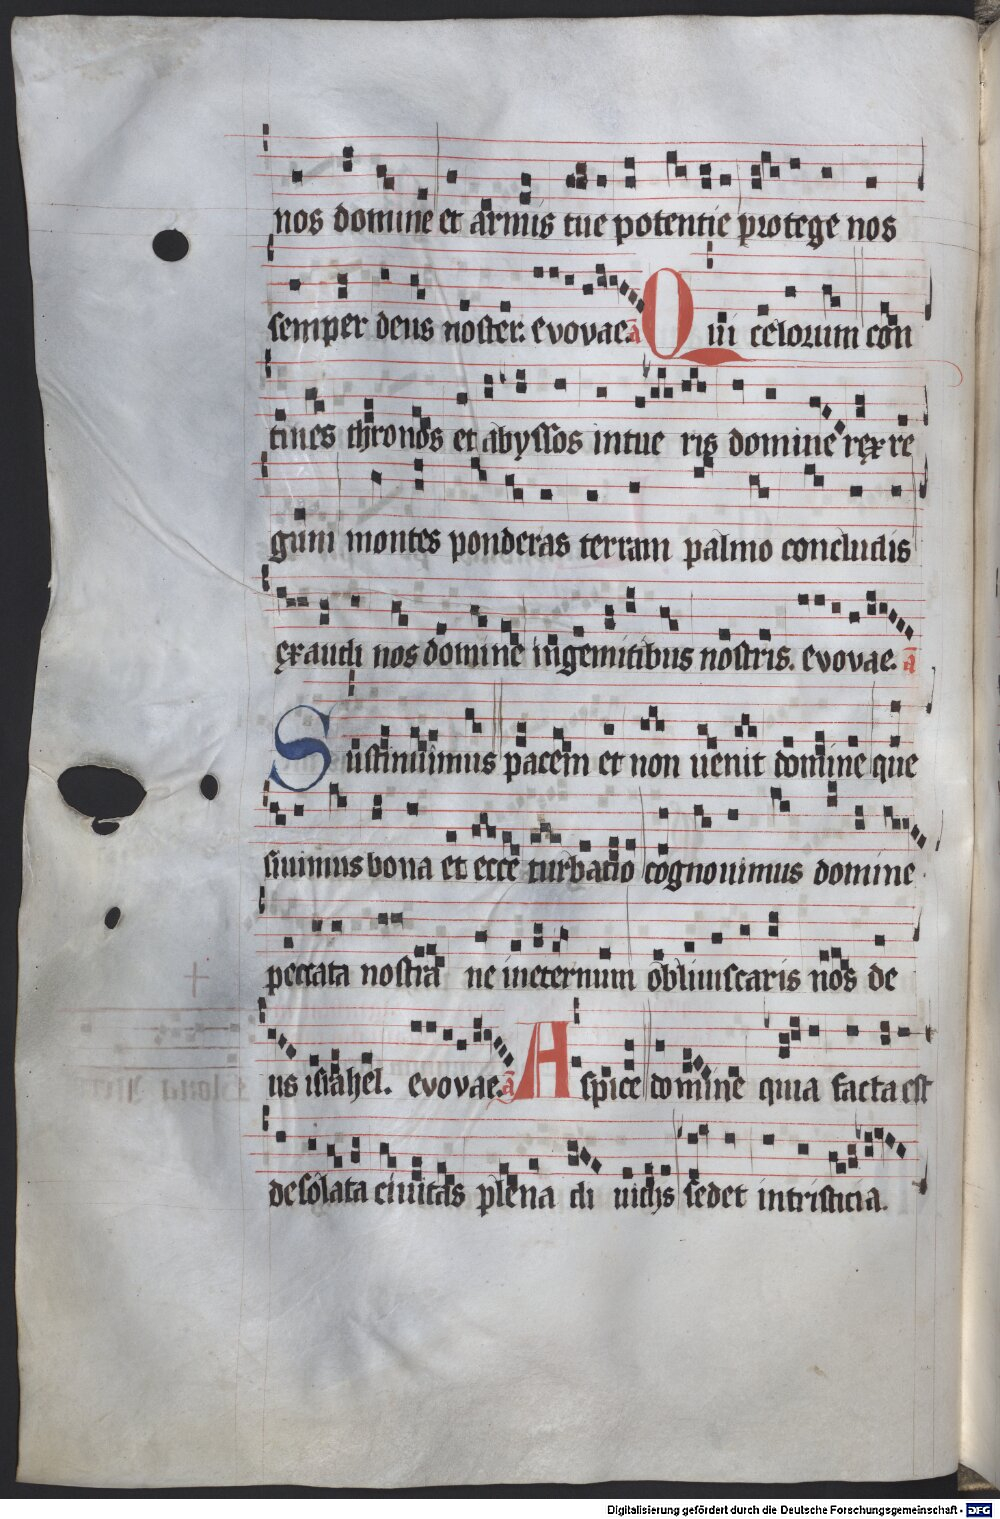 nos domine et armis tue potentie protege nos
semper deus noster. evovae. a Qui celorum con
tines thronos et abyssos intue ris domine rex re
gum montes ponderas terram palmo concludis
exaudi nos domine in gemitibus nostris. evovae. a
Sustinuimus pacem et non uenit domine que
siuimus bona et ecce turbatio cognouimus domine
peccata nostra ne in eternum obliuiscaris nos de
us israhel. evovae. a Aspice domine quia facta est
desolata ciuitas plena di uichs sedet in tristicia.
Digitalisierung gefördert durch die Deutsche Forschungsgemeinschaft - DFG